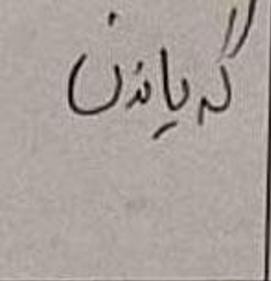 گه یاندن